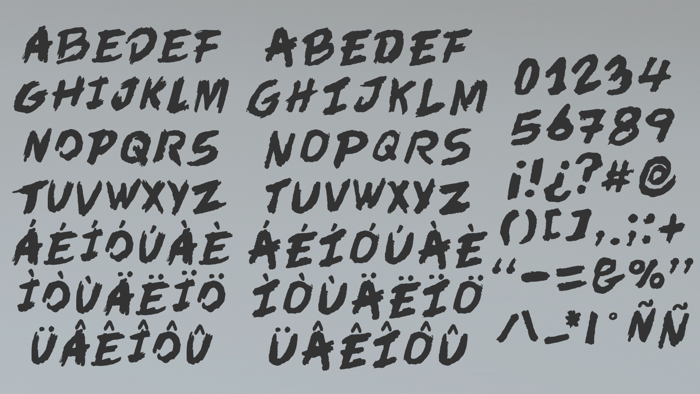 ABEDEF
GHIJKLM
NOPQRS
TUVWXYZ
ÁÉÍÓÚÀÈ
ÌÒÙÄËÏÖ
ÜÂÊÎÔÛ
ABEDEF
GHIJKLM
NOPQRS
TUVWXYZ
ÁÉÍÓÚÀÈ
ÌÒÙÄËÏÖ
ÜÂÊÎÔÛ
01234
56789
¡!¿?#@
()[],.;:+
“-=&%”
/\_*|°ÑÑ